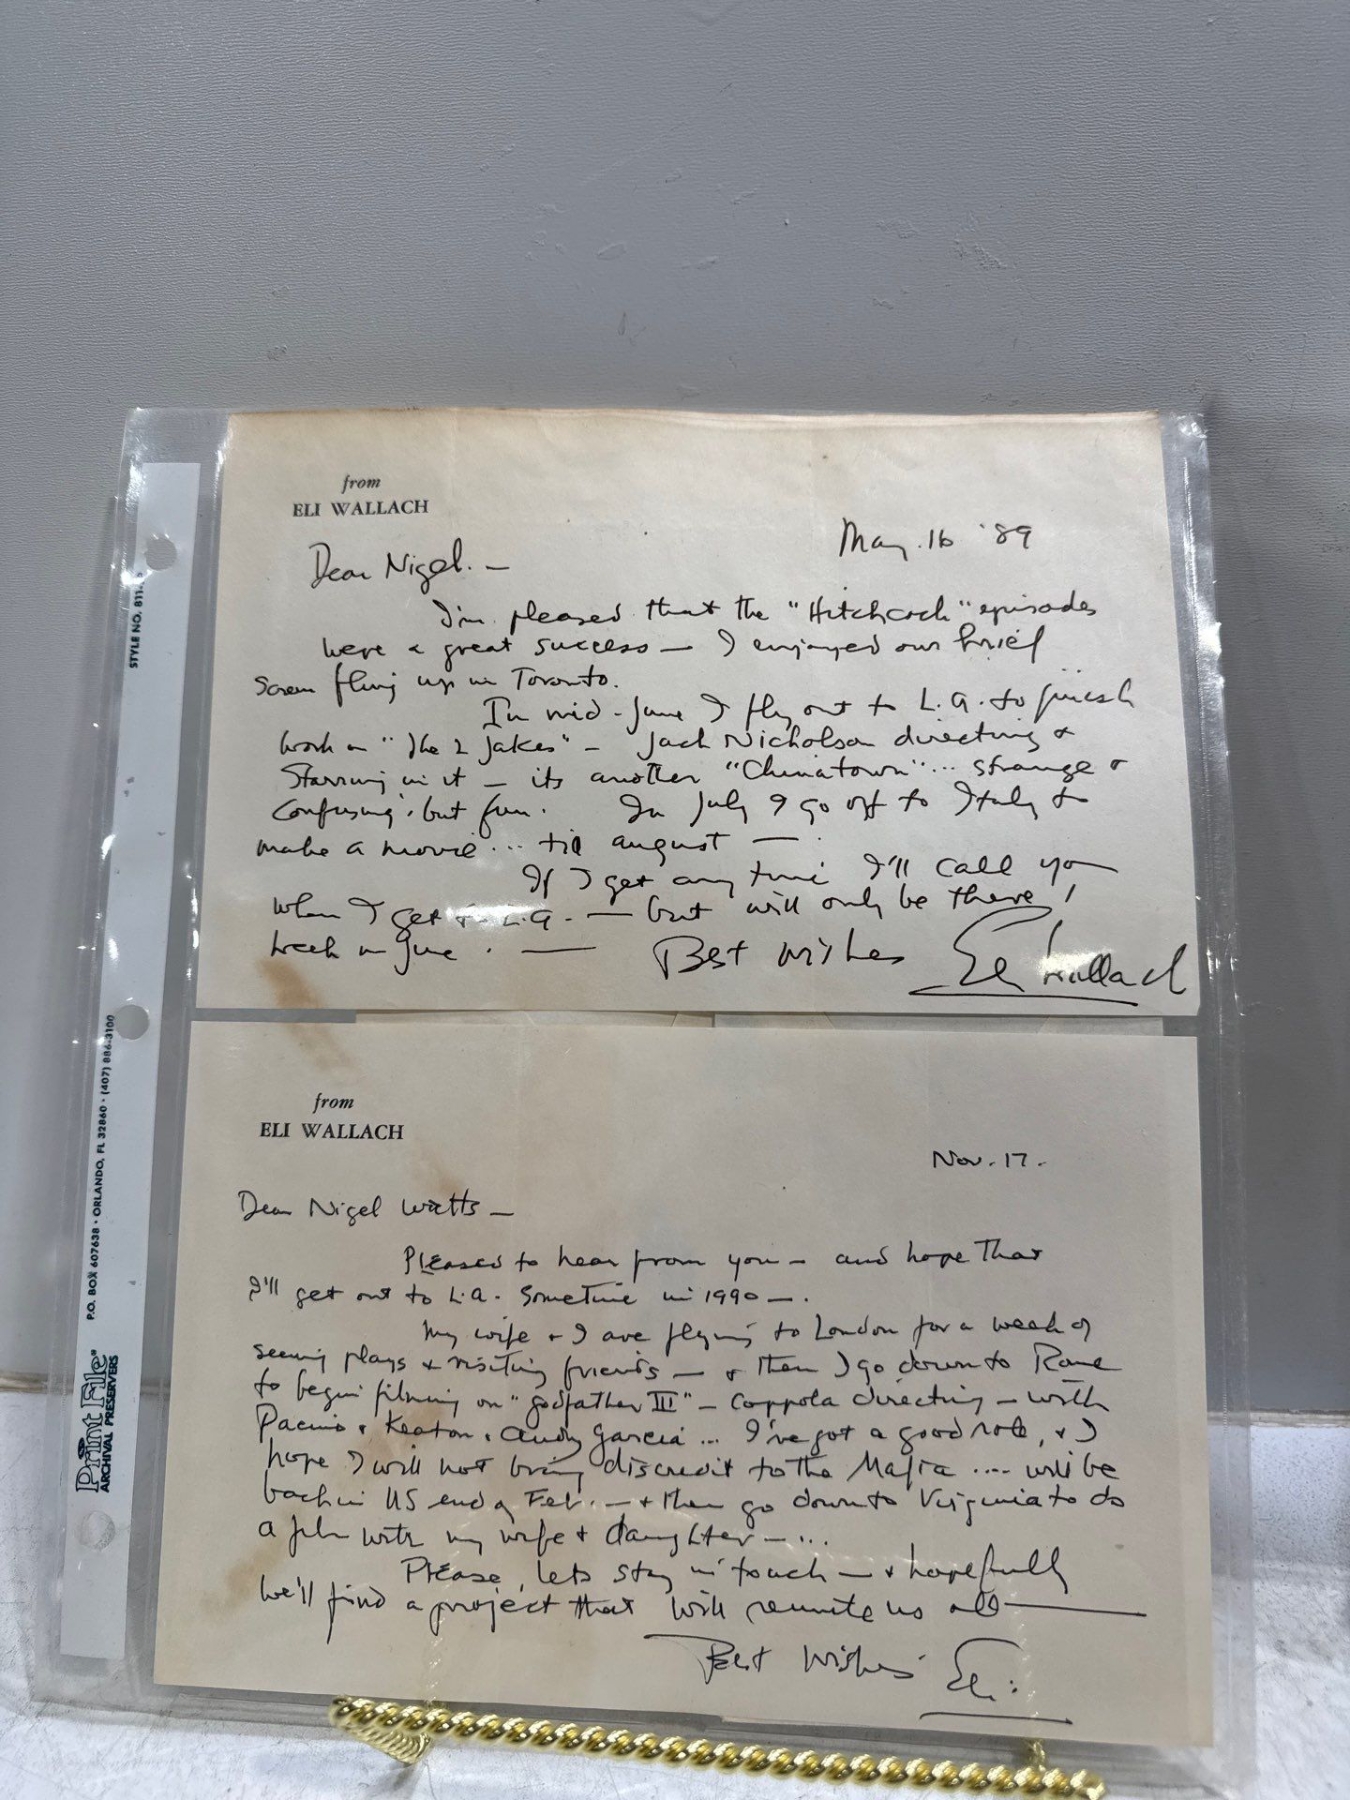 from
ELI WALLACH
May. 16 '89
Dear Nigel. —
I'm pleased that the "Hitchcock" episodes
were a great success — I enjoyed our brief
fling up in Toronto.
In mid-June I fly out to L.A. to finish
work on "The 2 Jakes" — Jack Nicholson directing &
starring in it — its another "Chinatown"... strange &
confusing, but fun. In July I go off to Italy to
make a movie... til august —
If I get any time I'll call you
when I get to L.A. — but will only be there 1
week in June. — Best Wishes Eli Wallach
from
ELI WALLACH
Nov. 17.
Dear Nigel Watts —
Pleased to hear from you — and hope that
I'll get out to L.A. sometime in 1990 —.
My wife & I are flying to London for a week of
seeing plays & visiting friends — & then I go down to Rome
to begin filming on "Godfather III" — Coppola directing — with
Pacino & Keaton & Andy Garcia... I've got a good role, & I
hope I will not bring discredit to the Mafia .... will be
back in US end of Feb. — & then go down to Virginia to do
a with my wife & daughter — ...
Please, lets stay in touch — & hopefully
we'll find a project that will reunite us all —
Best Wishes Eli.
STYLE NO. 811
P.O. BOX 607638 • ORLANDO, FL 32860 • (407) 886-3100
Print File®
ARCHIVAL PRESERVERS